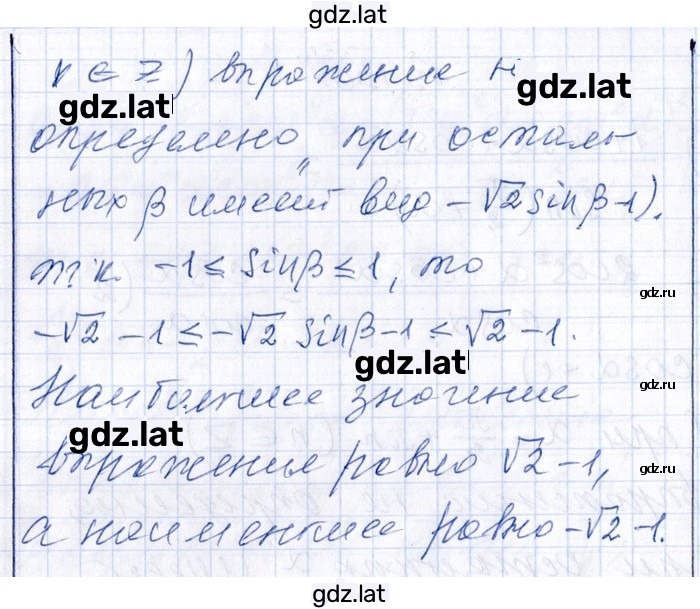 gdz.lat
k ∈ Z) выражение н
gdz.lat
gdz.lat
определено, при осталь-
ных β имеет вид -√2 sinβ-1).
т.к. -1 ≤ sinβ ≤ 1, то
gdz.ru
-√2 -1 ≤ -√2 sinβ-1 ≤ √2 -1.
gdz.lat
Наибольшее значение
gdz.lat
выражения равно √2 -1,
gdz.ru
а наименьшее равно -√2 -1.
gdz.lat